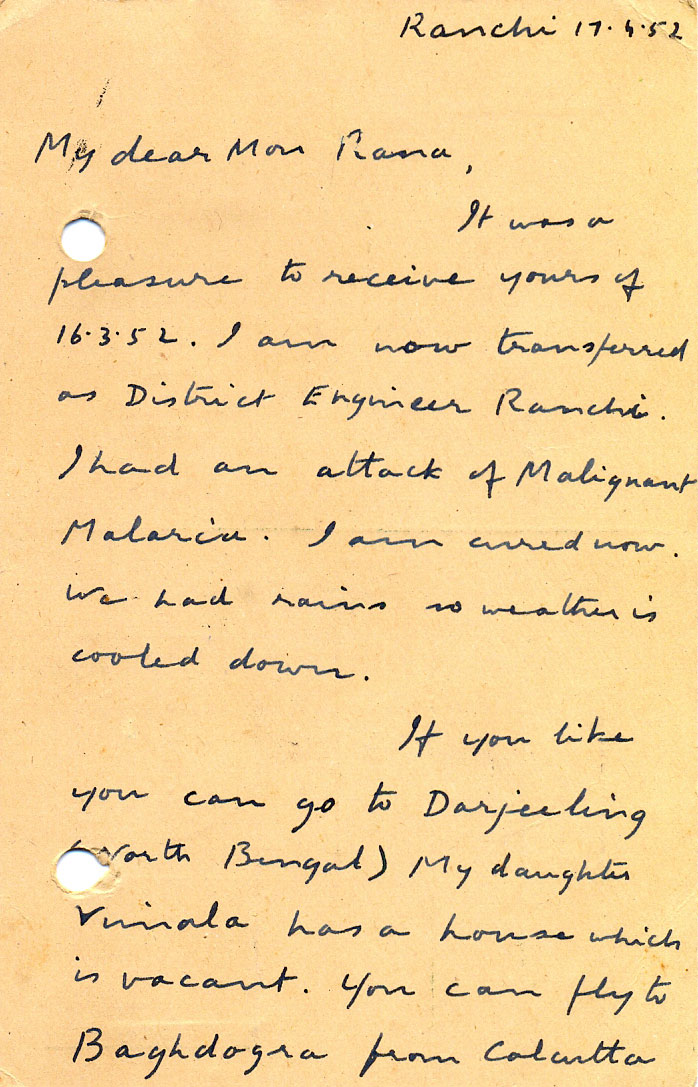 Ranchi 17.4.52
My dear Mon Rana,
It was a
pleasure to receive yours of
16.3.52. I am now transferred
as District Engineer Ranchi.
I had an attack of Malignant
Malaria. I am cured now.
We had rains so weather is
cooled down.
If you like
you can go to Darjeeling
(North Bengal) My daughter
Vimala has a house which
is vacant. You can fly to
Baghdogra from Calcutta